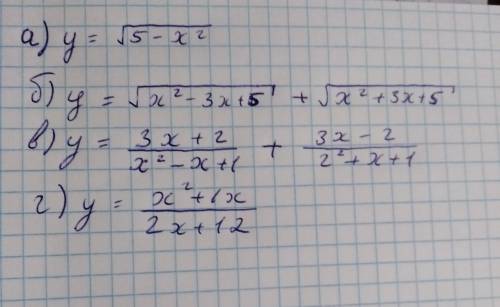 а) y = √5 - x²
б) y = √x² - 3x + 5 + √x² + 3x + 5
в) y = 3x + 2 / x² - x + 1 + 3x - 2 / 2² + x + 1
г) y = x² + 1x / 2x + 12